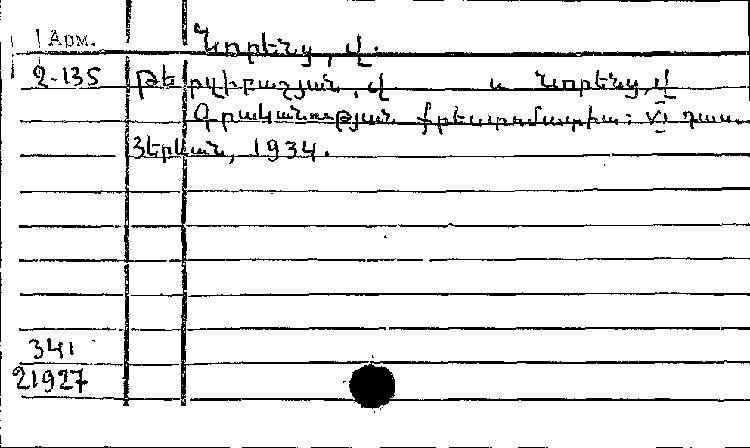 Арм. Նորենց, վ.
2-135 Թերվիբաշյան, վ և Նորենց, վ
Գրականության քրեստոմատիա: VI դաս.
Յերևան, 1934.
341
21927